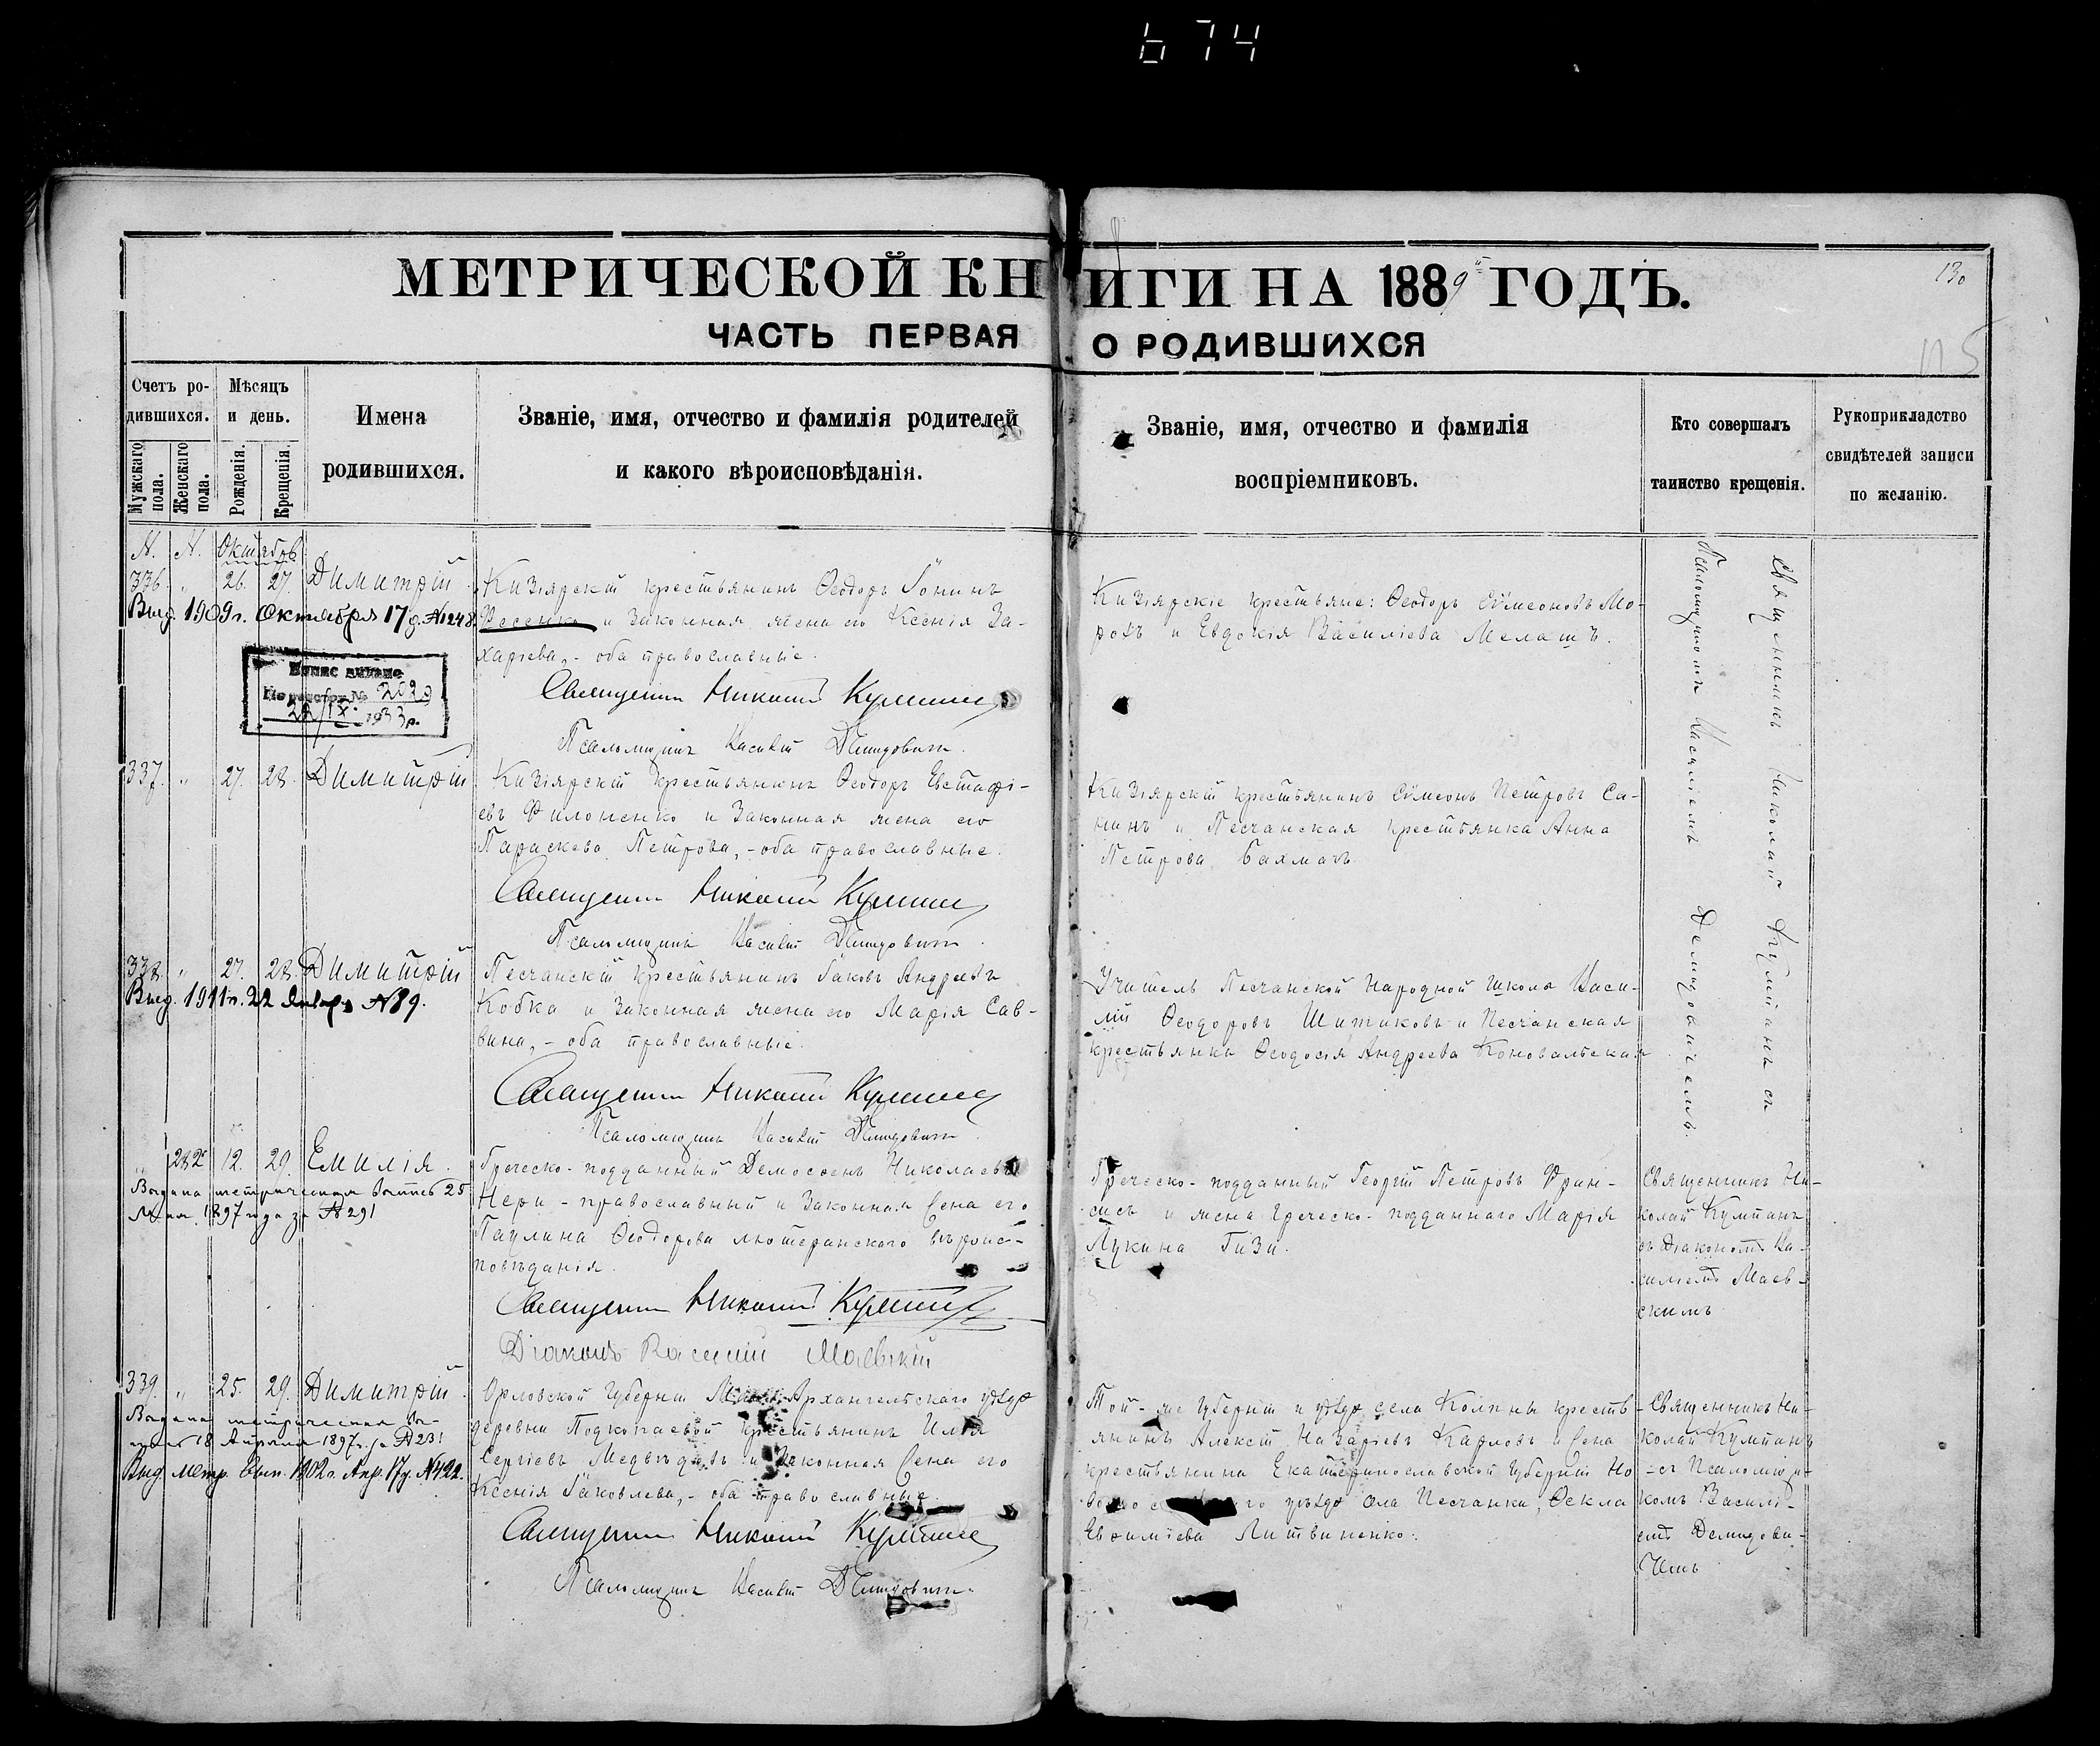 674
МЕТРИЧЕСКОЙ КНИГИ НА 1889й ГОДЪ.
130
ЧАСТЬ ПЕРВАЯ О РОДИВШИХСЯ
Счетъ ро-
дившихся.
Мужскаго пола.
Женскаго пола.
Мѣсяцъ
и день.
Рожденія.
Крещенія.
Имена
родившихся.
Званіе, имя, отчество и фамилія родителей
и какого вѣроисповѣданія.
Званіе, имя, отчество и фамилія
воспріемниковъ.
Кто совершалъ
таинство крещенія.
Рукоприкладство
свидѣтелей записи
по желанію.
N. N. Октябрь
336. " 26. 27. Димитрій
Выд. 1909г. Октября 17д. №1248
2029
22/IX. 1933р.
Кизіярскій крестьянинъ Ѳеодоръ
Фесенко и законная жена его Ксенія За-
харіева,- оба православные.
Священникъ Николай Кулпинъ
Псаломщикъ Василій Демидовичъ.
Кизіярскіе крестьяне: Ѳеодоръ Сѵмеоновъ Мо-
розъ и Евдокія Василіева Мелашъ.
Священникъ Николай Кулпанъ съ
Псаломщикомъ Василіемъ Демидовичемъ.
337. " 27. 28. Димитрій
Кизіярскій крестьянинъ Ѳеодоръ Евстафі-
евъ Филоненко и законная жена его
Параскева Петрова,-оба православные.
Священникъ Николай Кулпинъ
Псаломщикъ Василій Демидовичъ.
Кизіярскій крестьянинъ Сѵмеонъ Петровъ Са-
нинъ и Песчанская крестьянка Анна
Петрова Бахмачъ.
338. " 27. 28. Димитрій
Выд. 1911г. 22 Января №89.
Песчанскій крестьянинъ Іаковъ Андреевъ
Кобка и законная жена его Марія Сав-
вина,- оба православные.
Священникъ Николай Кулпинъ
Псаломщикъ Василій Демидовичъ
Учитель Песчанской народной школы Васи-
лій Ѳеодоровъ Шитиковъ и Песчанская
крестьянка Ѳеодосія Андреева Коновальская
" 282 12. 29. Емилія.
Выдана метрическая выпись 25
Мая 1897 года за №291
Греческо-подданный Демосѳенъ Николаевъ
Нери - православный и законная жена его
Паулина Ѳеодорова лютеранскаго вѣроис-
повѣданія.
Священникъ Николай Кулпинъ
Діаконъ Василій Маевскій
Греческо-подданный Георгій Петровъ Фран-
сисъ и жена Греческо-подданнаго Марія
Лукина Гизи.
Священникъ Ни-
колай Кулпанъ
съ Діакономъ Ва-
силіемъ Маев-
скимъ
339. " 25. 29. Димитрій.
Выдана метрическая вы-
пись 18 Апрѣля 1897г. за №231
Выд. метр. вып. 1902г. Апр. 17д. №422.
Орловской Губерніи Мало-Архангельскаго уѣзда
деревни Подкопаевой крестьянинъ Илья
Сергіевъ Медвѣдевъ и законная жена его
Ксенія Іаковлева,- оба православные.
Священникъ Николай Кулпинъ
Псаломщикъ Василій Демидовичъ.
Той-же Губерніи и уѣзда села Колпны кресть-
янинъ Алексій Назаріевъ Карловъ и жена
крестьянина Екатеринославской Губерніи Но
уѣзда села Песчанки, Ѳекла
Евѳиміева Литвиненко.
Священникъ Ни-
колай Кулпанъ
съ Псаломщи-
комъ Василі-
емъ Демидови-
чемъ